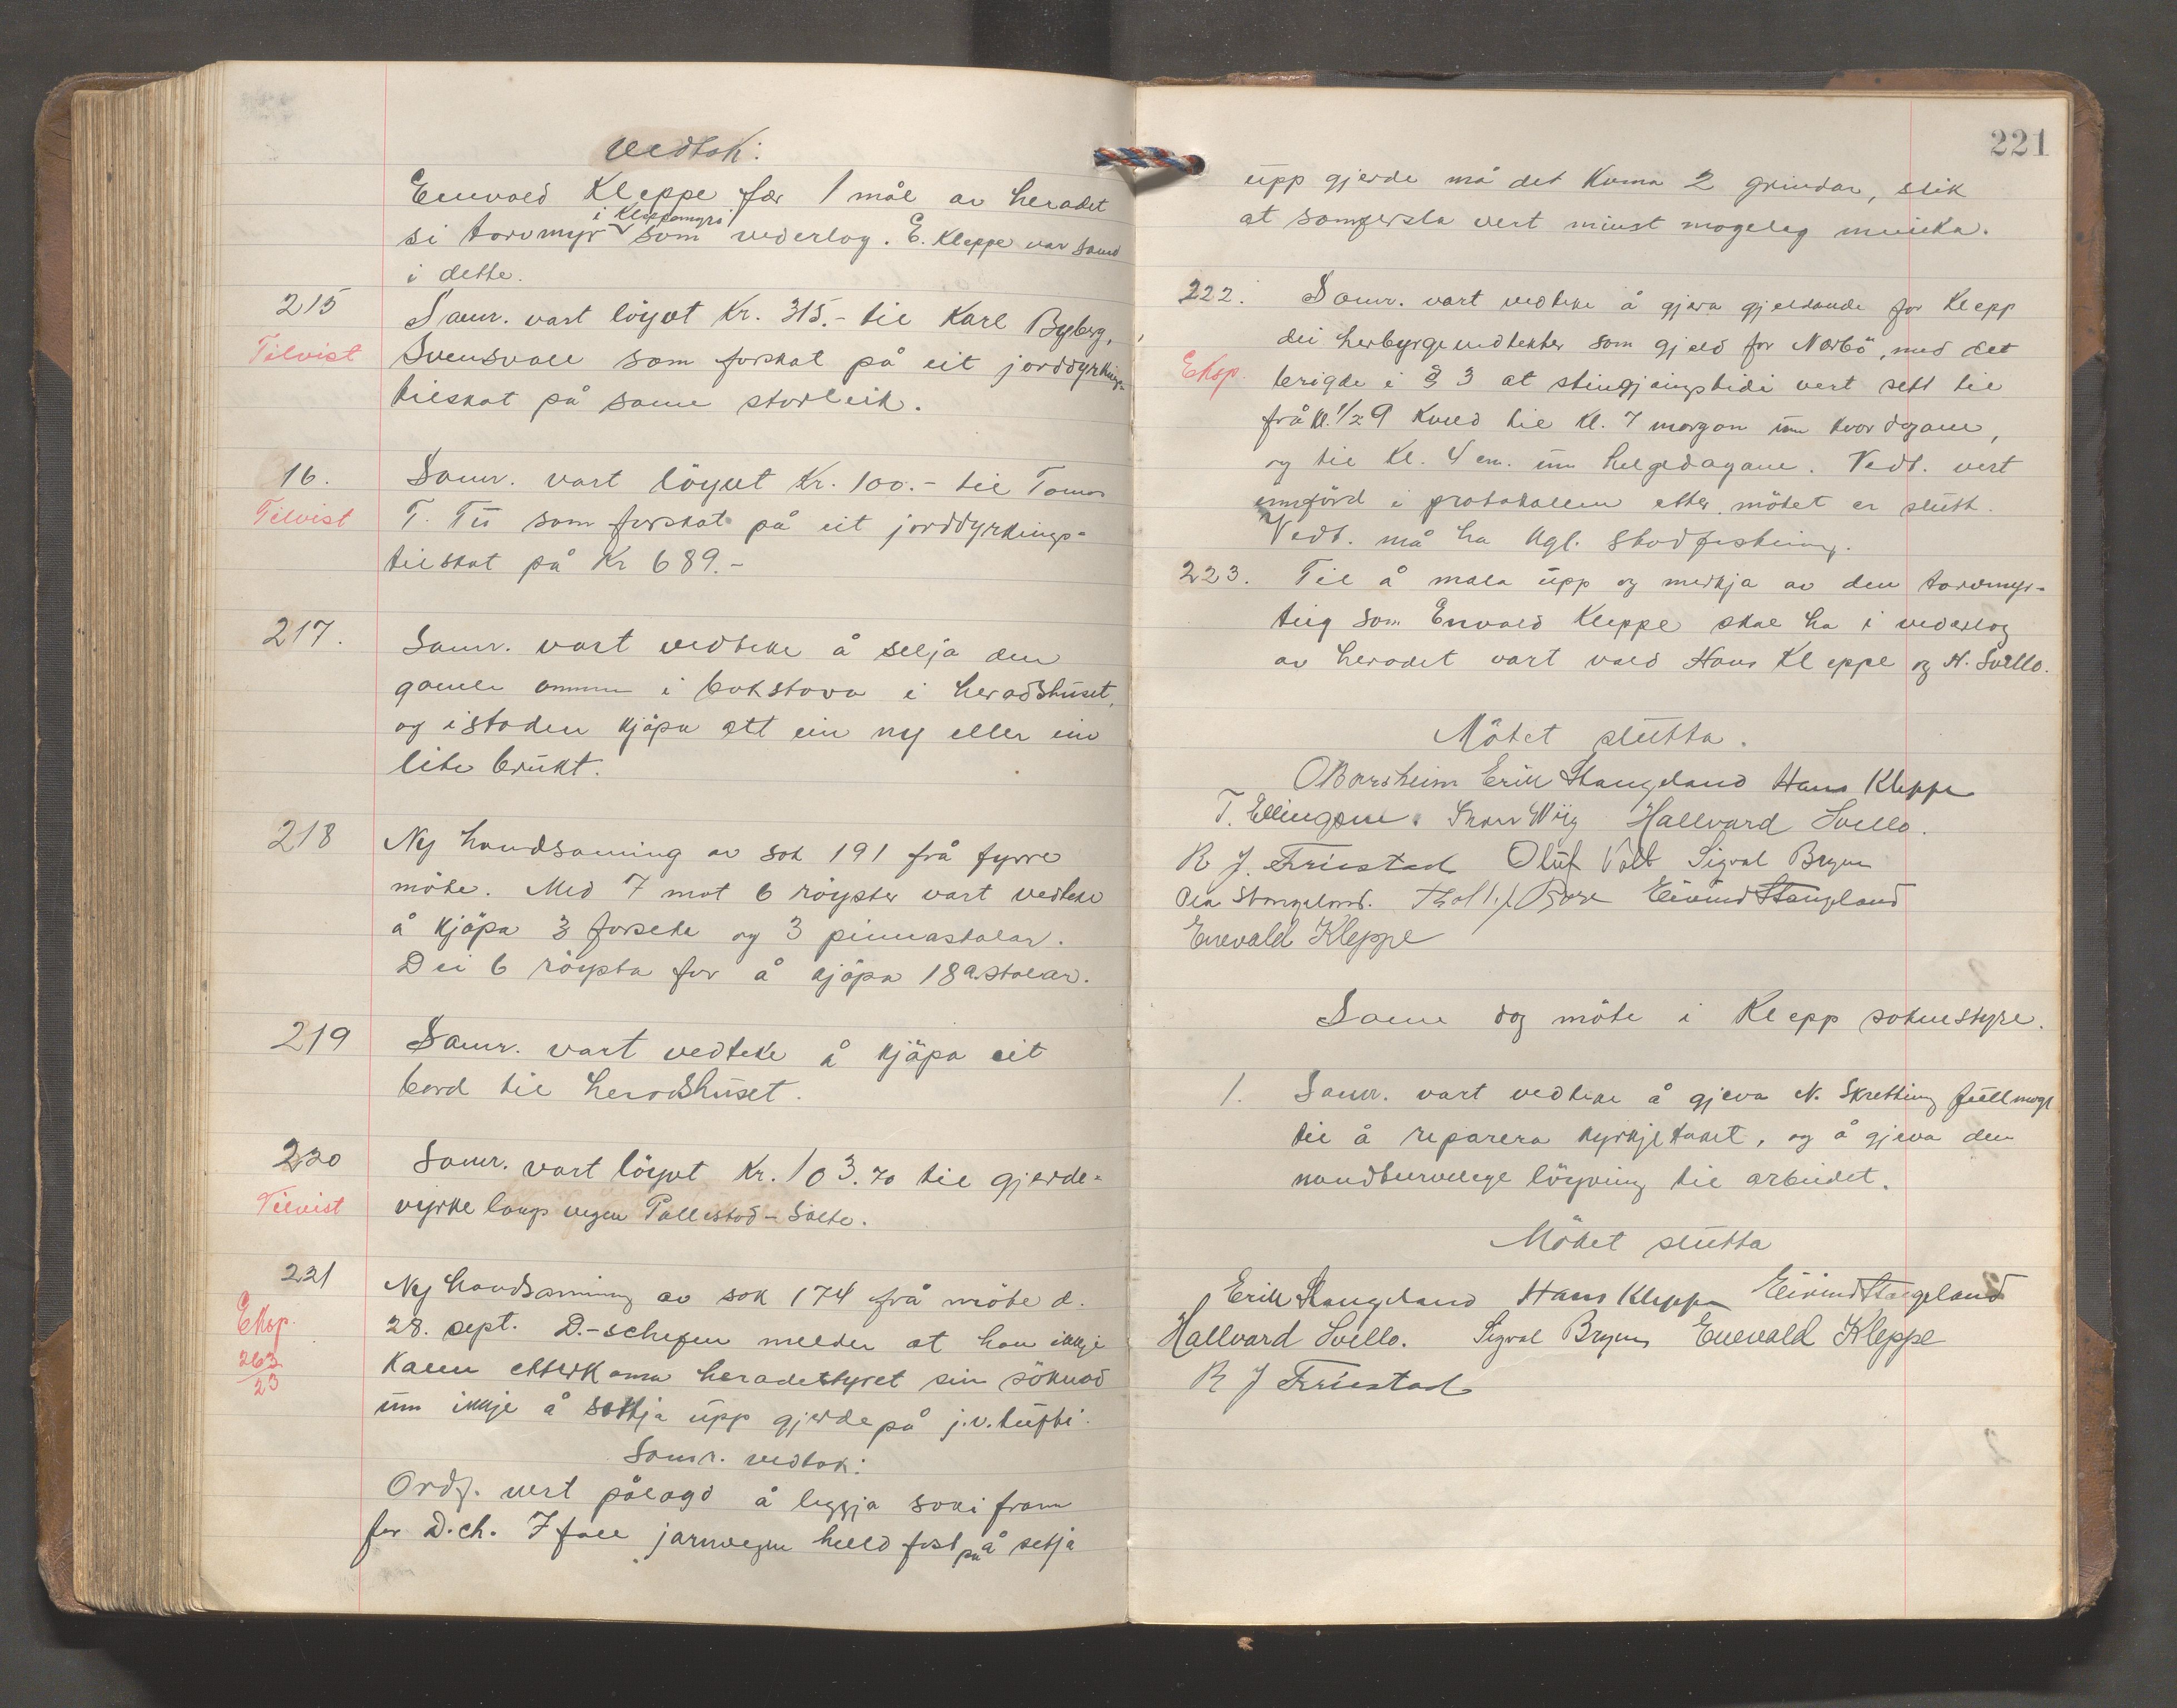 Vedtok:
Enevald Kleppe fær 1 mål av heradet
i Kleppemyrå
si torvmyr som vederlog. E. Kleppe var samd
i dette.
215
Samr. vart löyvt Kr. 315.- til Karl Byberg,
Tilvist
Svensvoll som forskot på eit jorddyrkings-
tilskot på same storleik.
16.
Samr. vart löyvt Kr. 100.- til Tomas
Tilvist
T. Tu som forskot på eit jorddyrkings-
tilskot på Kr 689.-
217.
Samr. vart vedteke å selja den
gamle omnen i bokstova i heradshuset,
og istaden kjöpa att ein ny eller ein
lite brukt.
218
Ny handsaming av sak 191 frå fyrre
möte. Med 7 mot 6 röyster vart vedteke
å kjöpa 3 forsete og 3 pinnastolar.
Dei 6 röysta for å kjöpa 18 a.stolar.
219
Samr. vart vedteke å kjöpa eit
bord til heradshuset.
220
Samr. vart löyvt Kr. 103.70 til gjerde-
Tilvist
vyrke langs vegen Pollestad - Salte.
221
Ny handsaming av sak 174 frå möte d.
Eksp.
28. sept. D.-schefen melder at han ikkje
263/23
kann etterkoma heradstyret sin söknad
um ikkje å setja upp gjerde på j.v. tufti.
Samr. vedtok:
Ordf. vert pålagd å leggja saki fram
for D.ch. I fall jarnvegen held fast på å setja
221
upp gjerde må det koma 2 grindar, slik
at samfersla vert minst mogeleg minka.
222.
Samr. vart vedteke å gjera gjeldande for Klepp
dei herbyrgevedtekter som gjeld for Nærbö, med det
Eksp.
brigde i § 3 at stengjingstidi vert sett til
frå kl. 1/2 9 kveld til kl. 7 morgon um kvardagane,
og til kl. 4 em. um helgedagane. Vedt. vert
innförd i protokollen etter mötet er slutt.
Vedt. må ha kgl. stadfesting.
223.
Til å mæla upp og merkja av den torvmyr-
teig som Enevald Kleppe skal ha i vederlog
av heradet vart vald Hans Kleppe og H. Svello.
Mötet slutta.
O Borsheim Erik Stangeland Hans Kleppe
T. Ellingsen. Wiig Hallvard Svello.
R J. Friestad Oluf Voll Sigval Bryne
Ola Stangeland. Bore Eivind Stangeland
Enevald Kleppe
Same dag möte i Klepp soknestyre.
1.
Samr. vart vedteke å gjeva N. Skretting fullmagt
til å reparera kyrkjetaket, og å gjeva den
naudturvelege löyving til arbeidet.
Mötet slutta
Erik Stangeland Hans Kleppe Eivind Stangeland
Hallvard Svello. Sigval Bryne Enevald Kleppe
R J Friestad